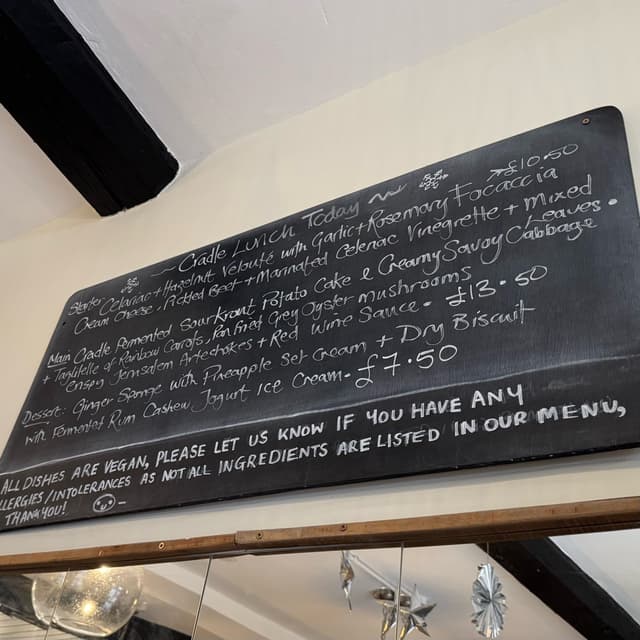 Cradle Lunch Today
£10.50
Starter Celariac + Hazelnut Velouté with Garlic + Rosemary Focaccia
Cream Cheese, Pickled Beet + Marinated Celeriac Vinegrette + Mixed
Leaves.
Main Cradle Fermented Sourkrout Potato Cake & Creamy Savoy Cabbage
+ Taglitelle of Rainbow Carrots, Pan Fried Grey Oyster mushrooms
Crispy Jerusalem Artechokes + Red Wine Sauce. £13.50
Dessert: Ginger Sponge with Pineapple Set Cream + Dry Biscuit
with Fermented Rum Cashew Jogurt Ice Cream. £7.50
ALL DISHES ARE VEGAN, PLEASE LET US KNOW IF YOU HAVE ANY
ALLERGIES/INTOLERANCES AS NOT ALL INGREDIENTS ARE LISTED IN OUR MENU,
THANK YOU!